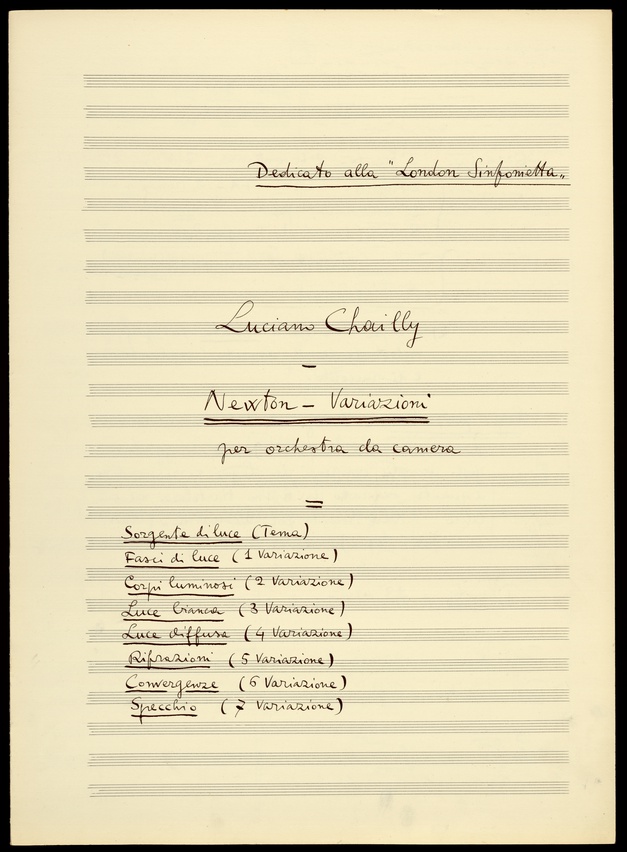 Dedicato alla "London Sinfonietta"
Luciano Chailly
–
Newton – Variazioni
per orchestra da camera
=
Sorgente di luce (Tema)
Fasci di luce (1 Variazione)
Corpi luminosi (2 Variazione)
Luce bianca (3 Variazione)
Luce diffusa (4 Variazione)
Rifrazioni (5 Variazione)
Convergenze (6 Variazione)
Specchio (7 Variazione)